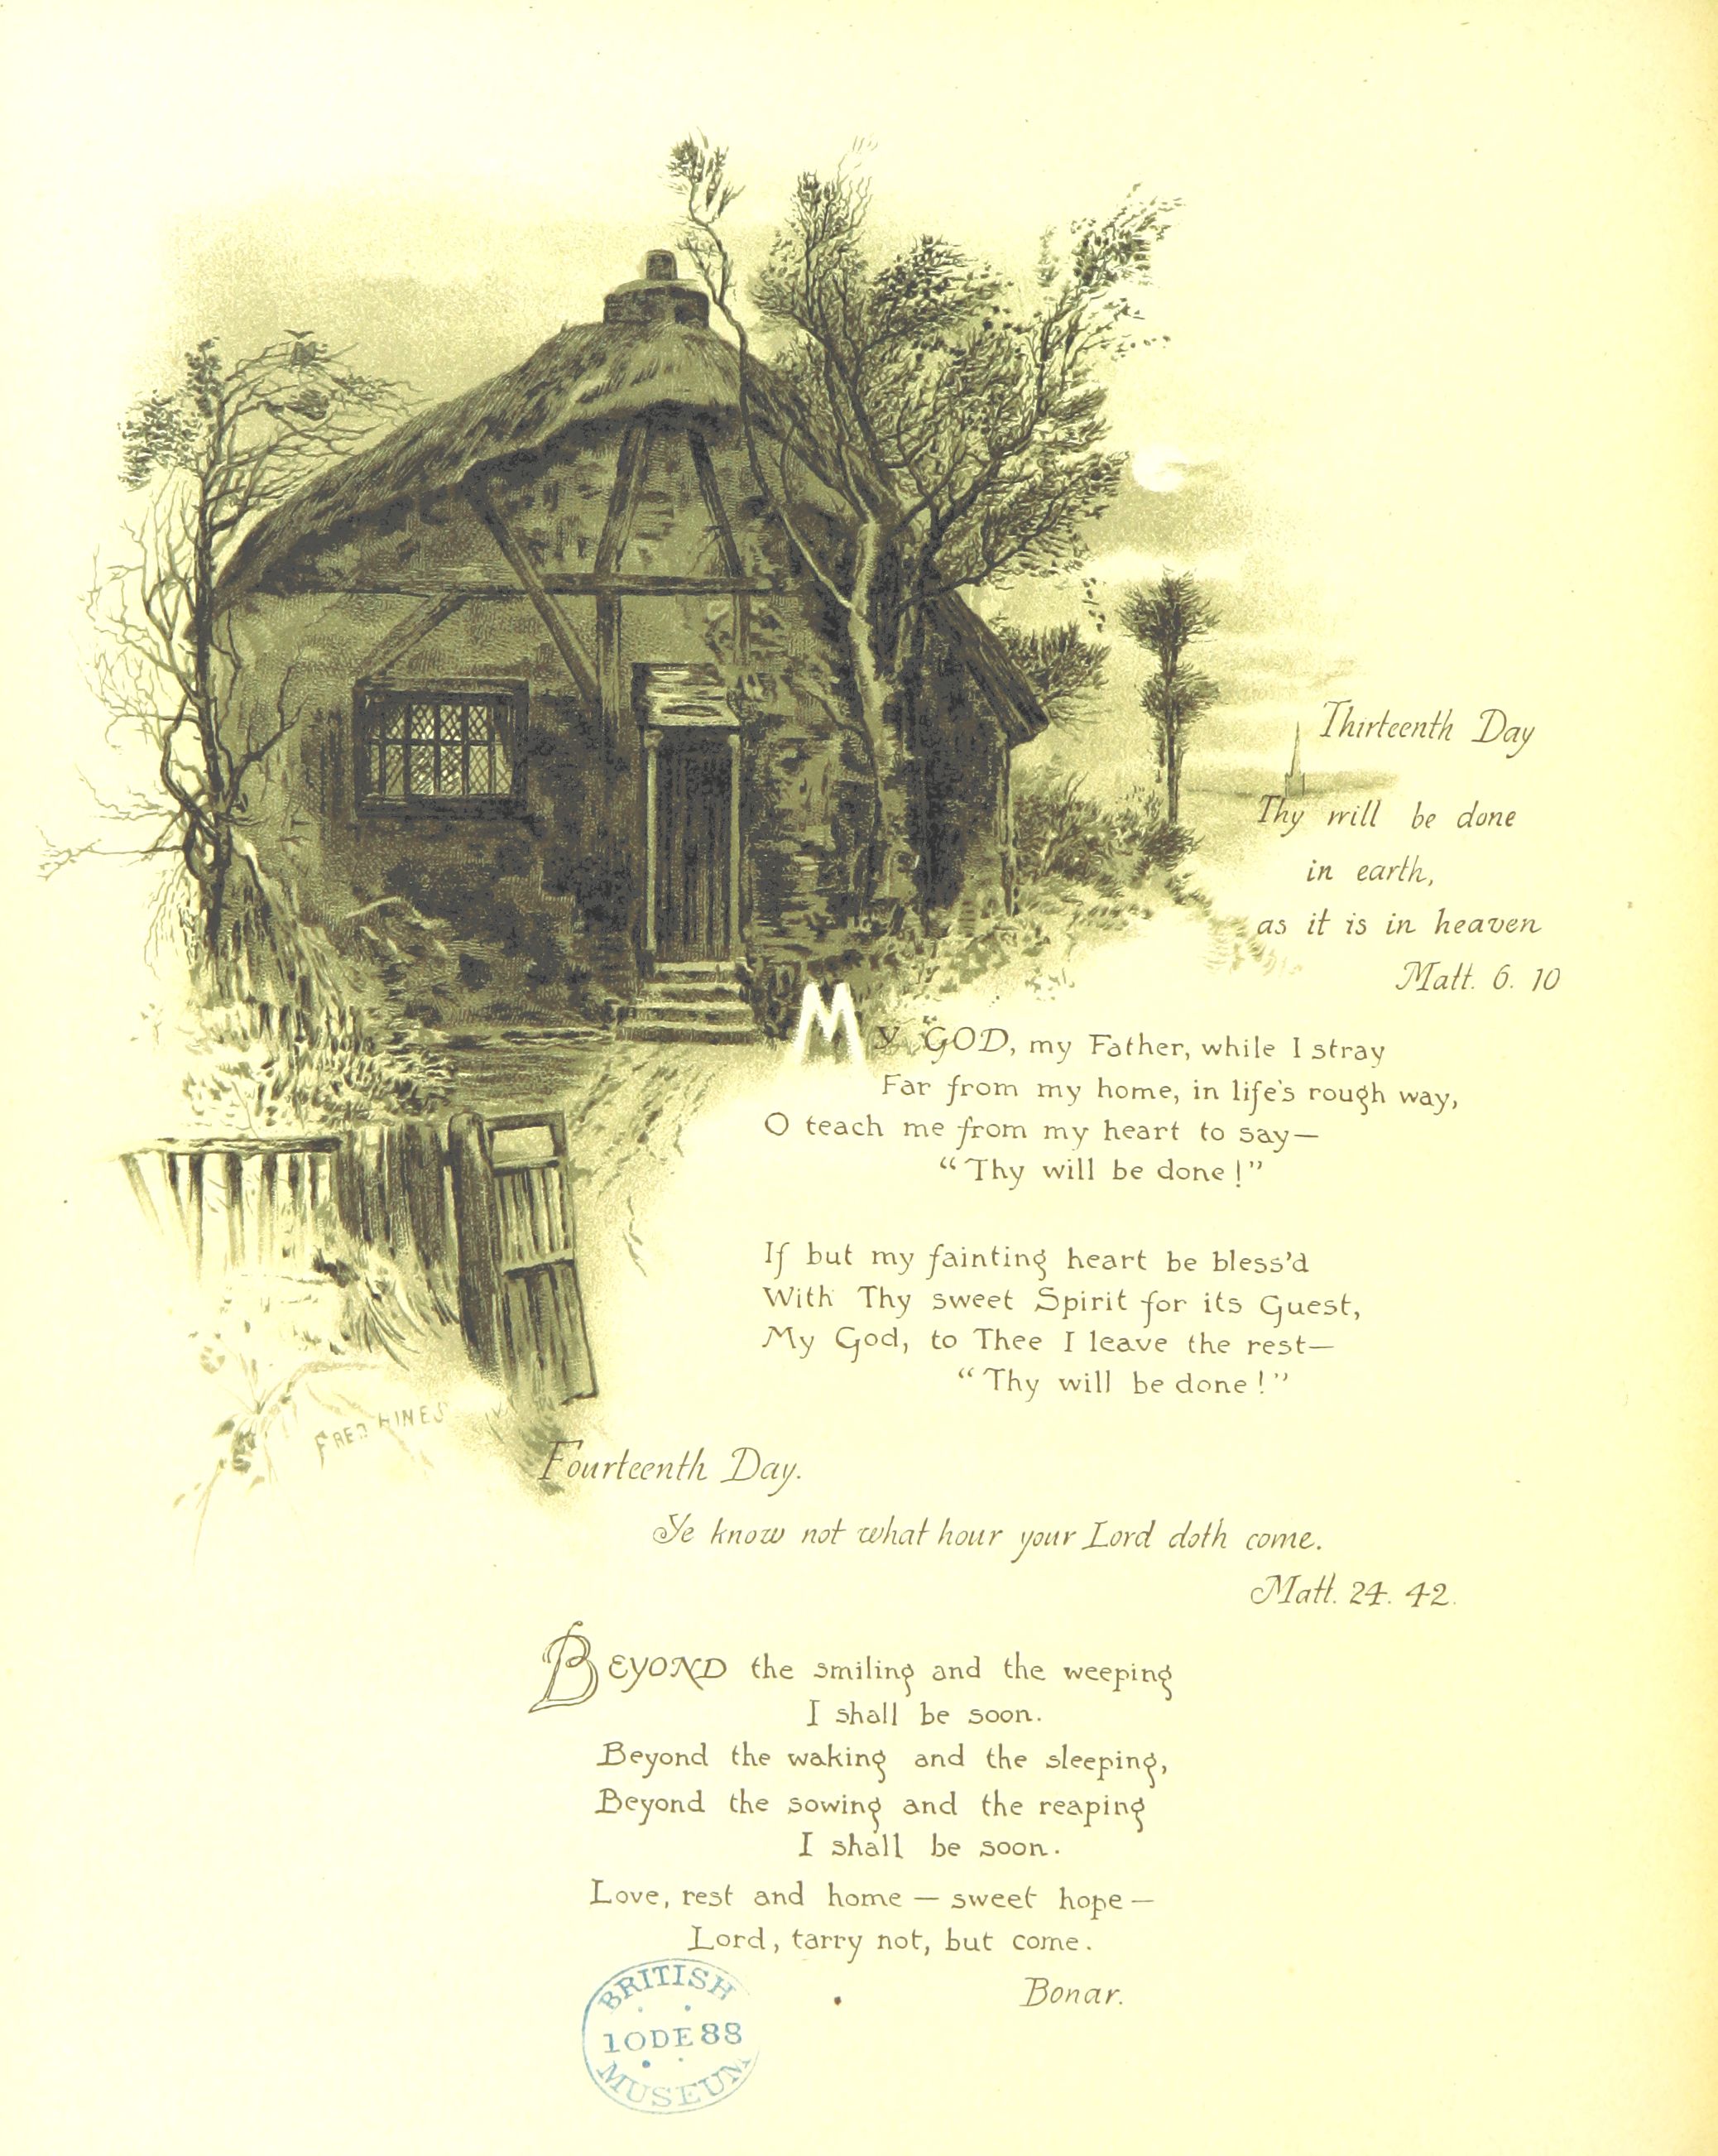 Thirteenth Day
Thy will be done
in earth,
as it is in heaven
Matt. 6. 10
My GOD, my Father, while I stray
Far from my home, in life's rough way,
O teach me from my heart to say—
"Thy will be done!"
If but my fainting heart be bless'd
With Thy sweet Spirit for its Guest,
My God, to Thee I leave the rest—
"Thy will be done!"
FRED HINES
Fourteenth Day.
Ye know not what hour your Lord doth come.
Matt. 24. 42.
BEYOND the smiling and the weeping
I shall be soon.
Beyond the waking and the sleeping,
Beyond the sowing and the reaping
I shall be soon.
Love, rest and home — sweet hope —
Lord, tarry not, but come.
Bonar.
BRITISH
10DE88
MUSEUM